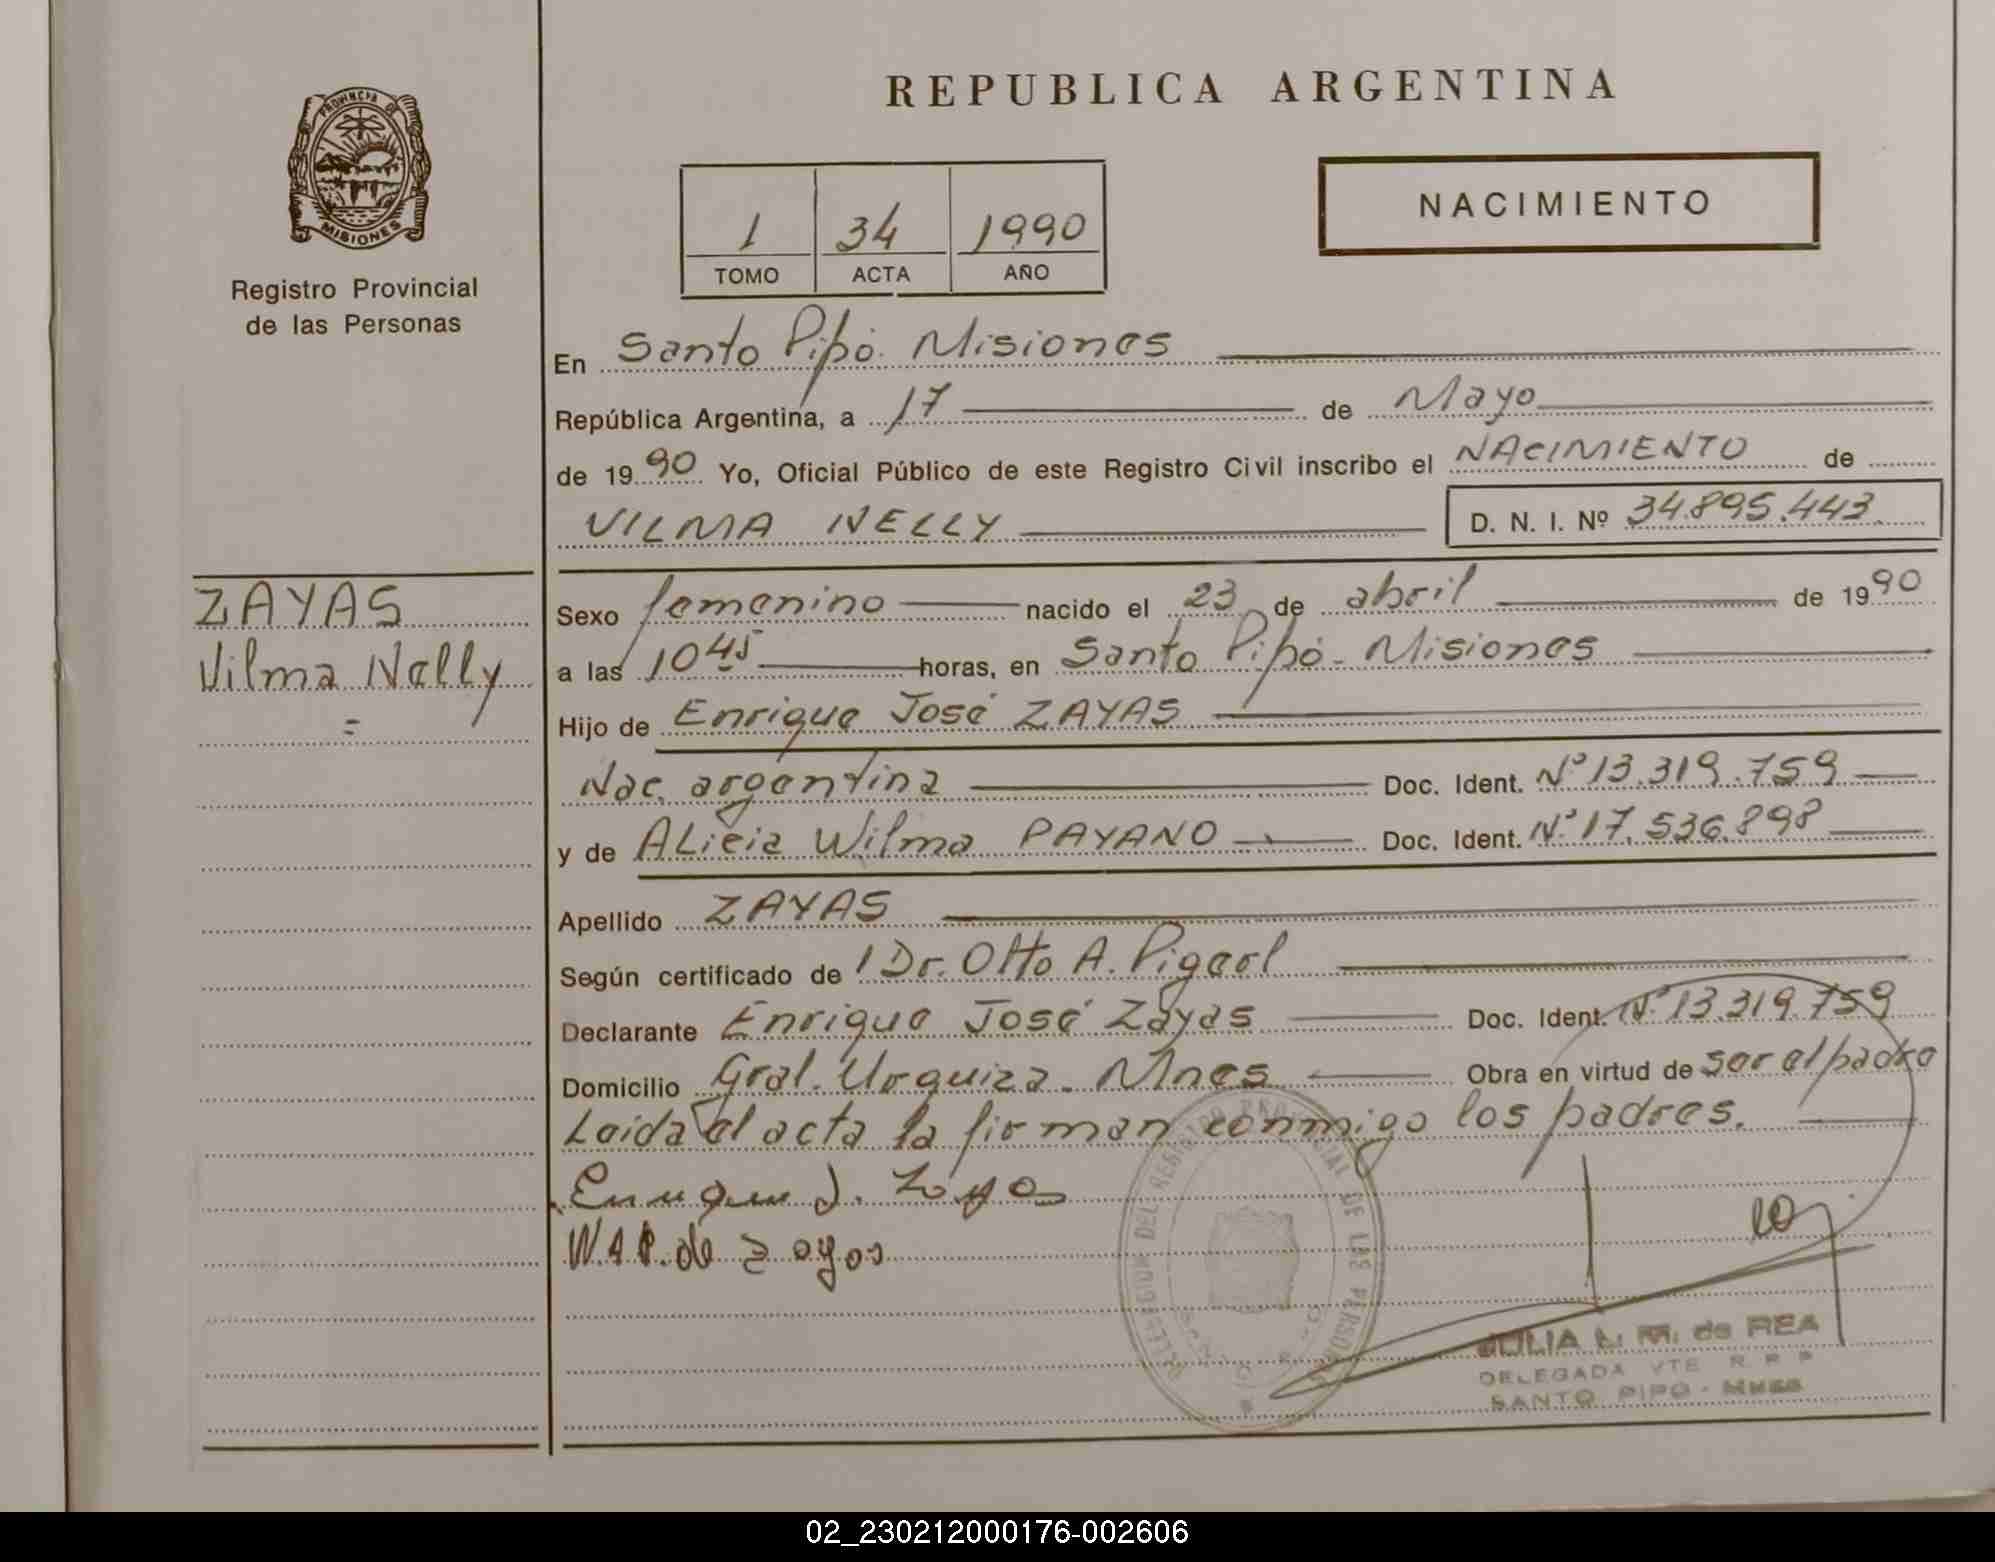 REPUBLICA ARGENTINA
PROVINCIA DE
MISIONES
Registro Provincial
de las Personas
1 34 1990
TOMO ACTA AÑO
NACIMIENTO
En Santo Pipó. Misiones
República Argentina, a 17 de Mayo
de 1990 Yo, Oficial Público de este Registro Civil inscribo el NACIMIENTO de
VILMA NELLY D. N. I. Nº 34.895.443.
ZAYAS
Vilma Nelly
=
Sexo femenino nacido el 23 de abril de 1990
a las 10 45 horas, en Santo Pipó - Misiones
Hijo de Enrique José ZAYAS
Nac. argentina Doc. Ident. Nº 13.319.759
y de ALicia Wilma PAYANO Doc. Ident. Nº 17.536.898
Apellido ZAYAS
Según certificado de Dr. Otto A.
Declarante Enrique José Zayas Doc. Ident. Nº 13.319.759
Domicilio Gral. Urquiza. Mnes Obra en virtud de ser el padre
Leida el acta la firman conmigo los padres.
Enrique J. Zayas
W.A.P. de Zayas
DELEGACION DEL REGISTRO PROVINCIAL DE LAS PERSONAS
JULIA L. M. de REA
DELEGADA VTE R. P. P
SANTO PIPO - MNES
02_230212000176-002606